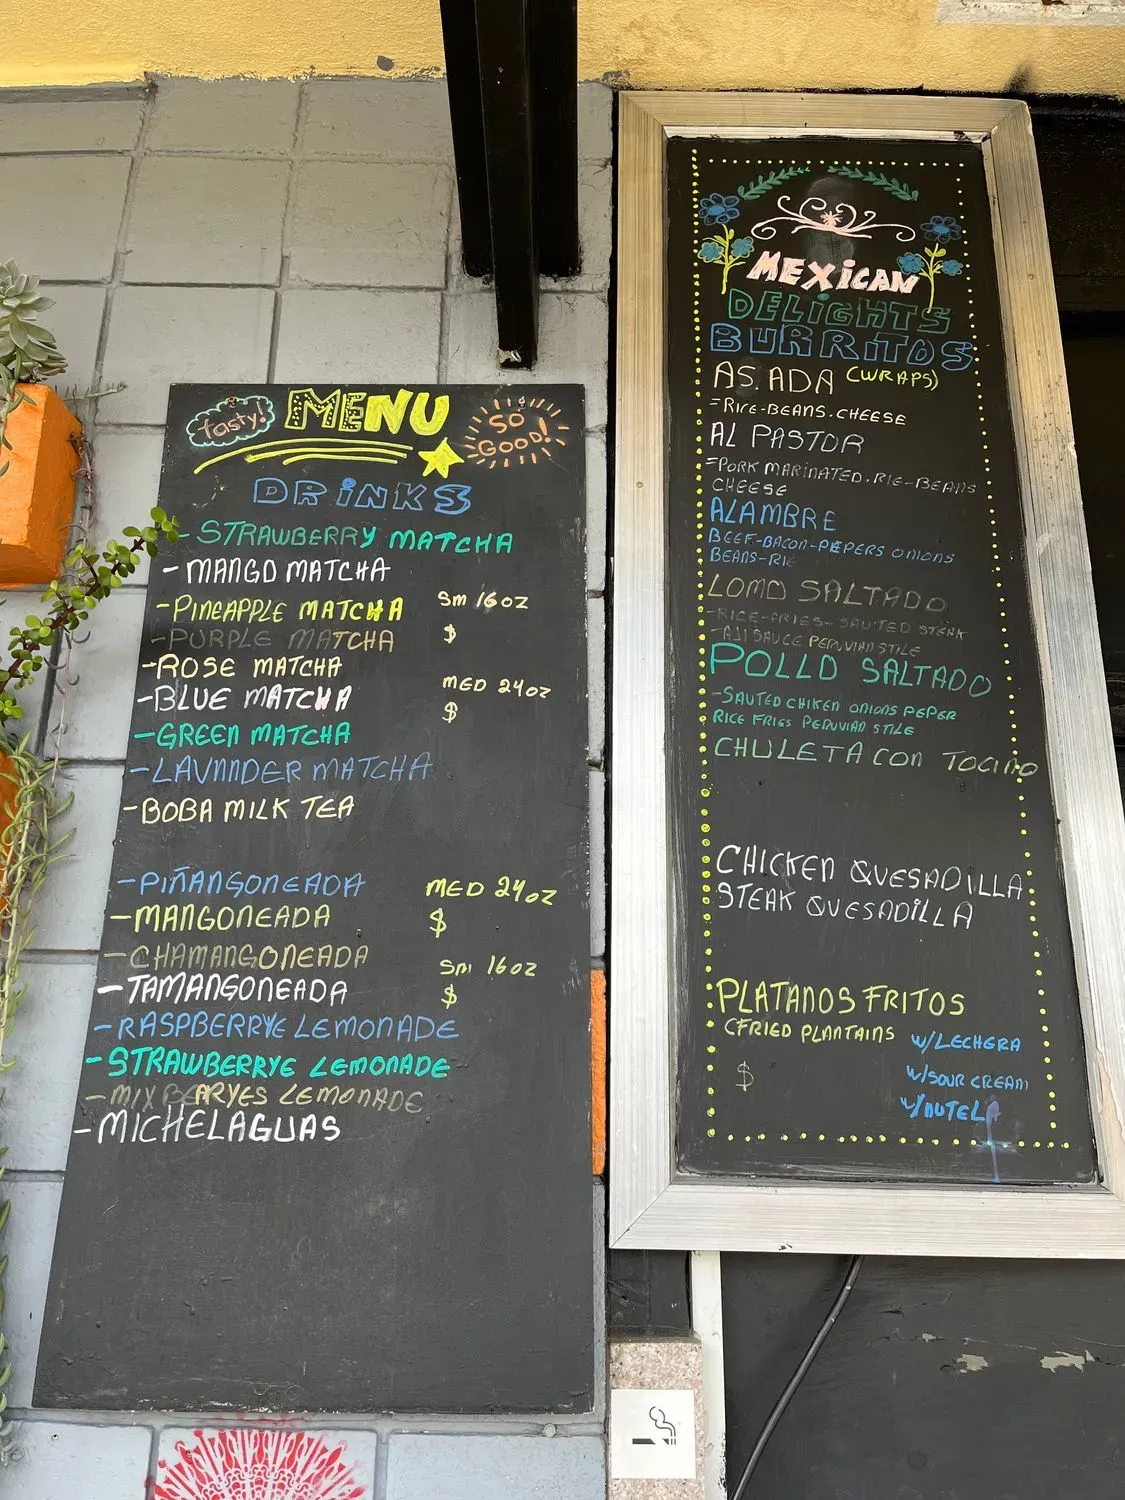 tasty!
MENU
SO GOOD!
DRINKS
- STRAWBERRY MATCHA
- MANGO MATCHA
- PINEAPPLE MATCHA
- PURPLE MATCHA
- ROSE MATCHA
- BLUE MATCHA
- GREEN MATCHA
- LAVNNDER MATCHA
- BOBA MILK TEA
Sm 16oz
$
MED 24oz
$
- PIÑANGONEADA
- MANGONEADA
- CHAMANGONEADA
- TAMANGONEADA
- RASPBERRYE LEMONADE
- STRAWBERRYE LEMONADE
- MIX BEARYES LEMONADE
- MICHELAGUAS
MED 24oz
$
Sm 16oz
$
MEXICAN
DELIGHTS
BURRITOS
AS.ADA (WRAPS)
- RICE-BEANS.CHEESE
AL PASTOR
- PORK MARINATED.RIE-BEANS
CHEESE
ALAMBRE
BEEF-BACON-PIEPERS ONIONS
BEANS-RI
LOMO SALTADO
- RICE-FRIES-SAUTED STENK
- AJI SAUCE PERUVIAN STILE
POLLO SALTADO
- SAUTED CHIKEN ONIONS PEPER
RICE FRIES PERUVIAN STILE
CHULETA CON TOCINO
CHICKEN QUESADILLA
STEAK QUESADILLA
PLATANOS FRITOS
(FRIED PLANTAINS
w/LECHERA
w/SOUR CREAM
w/NUTELA
$